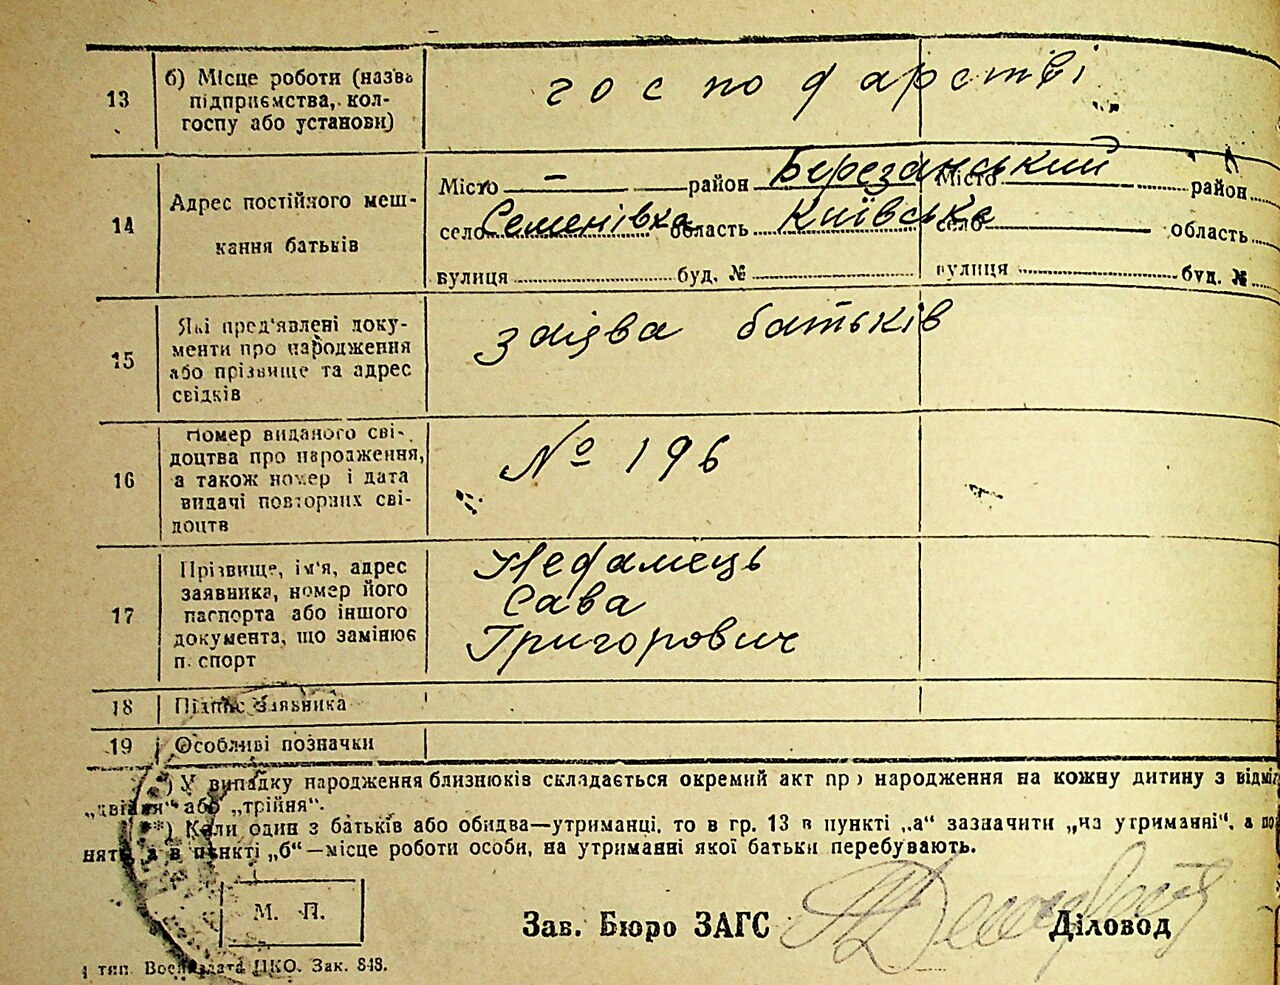 13 б) Місце роботи (назва
підприємства, кол-
госпу або установи)
господарстві
14 Адрес постійного меш-
кання батьків
Місто — район Березанський Місто район
село Семенівка область Київська село область
вулиця буд. № вулиця буд. №
15 Які пред'явлені доку-
менти про народження
або прізвище та адрес
свідків
заява батьків
16 Номер виданого сві-
доцтва про народження,
а також номер і дата
видачі повторних сві-
доцтв
№ 196
17 Прізвище, ім'я, адрес
заявника, номер його
паспорта або іншого
документа, що замінює
п. спорт
Сава
Григорович
18 Підпис заявника
19 Особливі позначки
) У випадку народження близнюків складається окремий акт про народження на кожну дитину з
„двійня“ або „трійня“.
**) Коли один з батьків або обидва—утриманці, то в гр. 13 в пункті „а“ зазначити „на утриманні“, а
а в пункті „б“—місце роботи особи, на утриманні якої батьки перебувають.
М. П.
Зав. Бюро ЗАГС Діловод
тип. Воєнвидата НКО. Зак. 848.